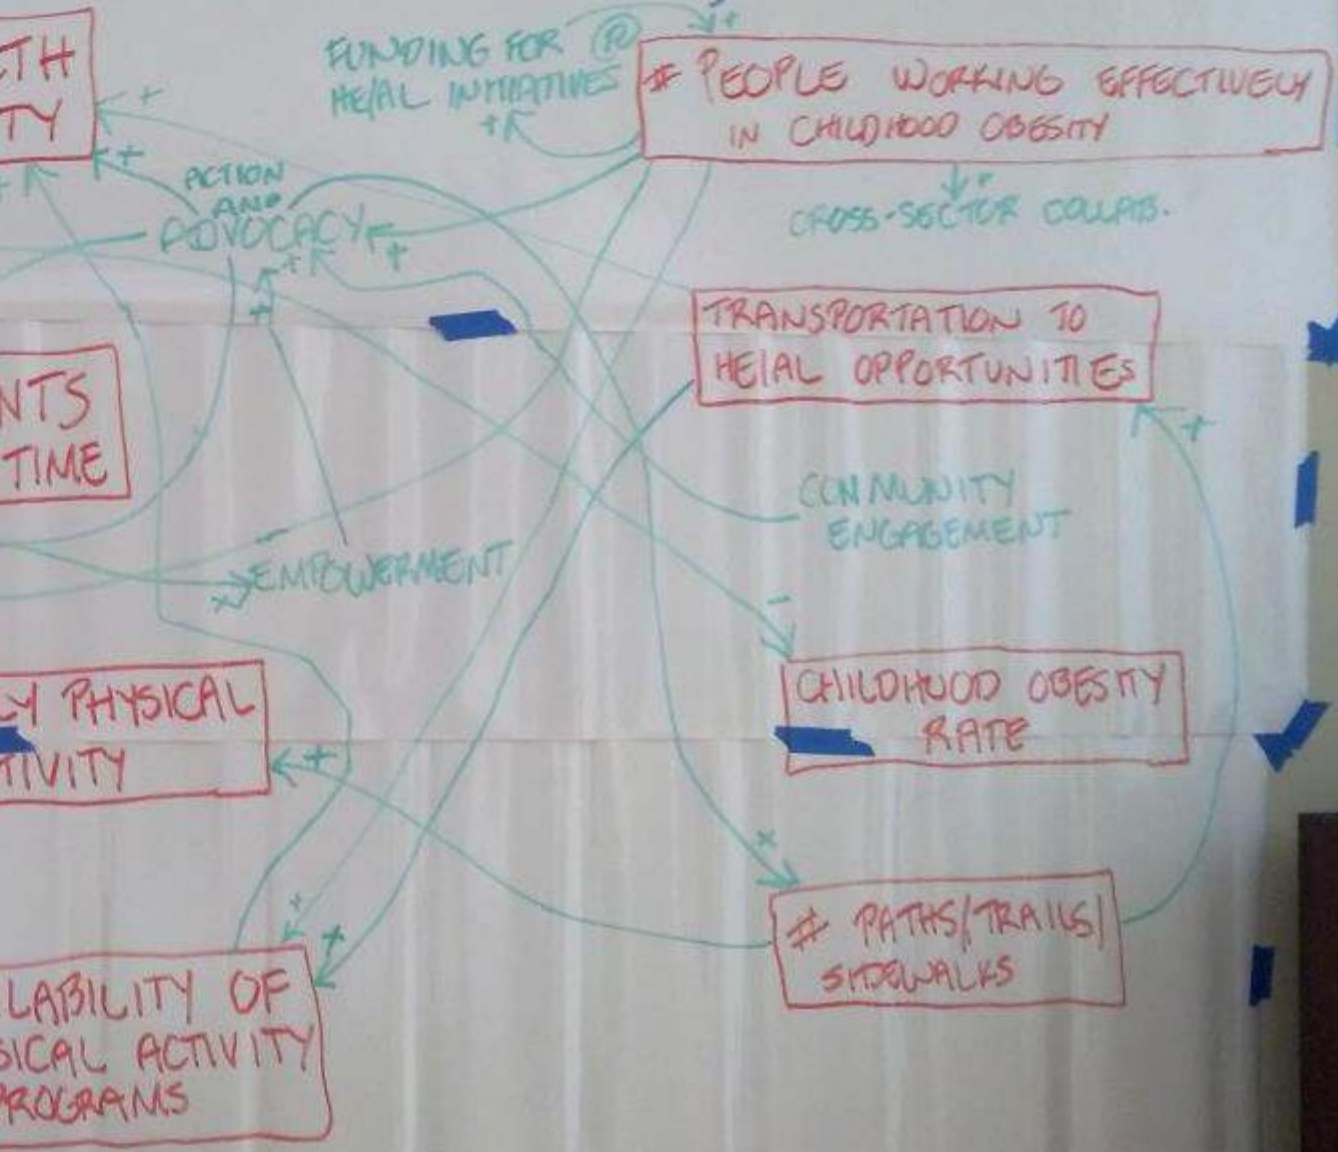 FUNDING FOR
HE/AL INITIATIVES
R
# PEOPLE WORKING EFFECTIVELY
IN CHILDHOOD OBESITY
LTH
TY
ACTION
AND
ADVOCACY
CROSS-SECTOR COLLAB.
TRANSPORTATION TO
HE/AL OPPORTUNITIES
NTS
TIME
COMMUNITY
ENGAGEMENT
EMPOWERMENT
LY PHYSICAL
TIVITY
CHILDHOOD OBESITY
RATE
# PATHS/TRAILS/
SIDEWALKS
LABILITY OF
SICAL ACTIVITY
PROGRAMS